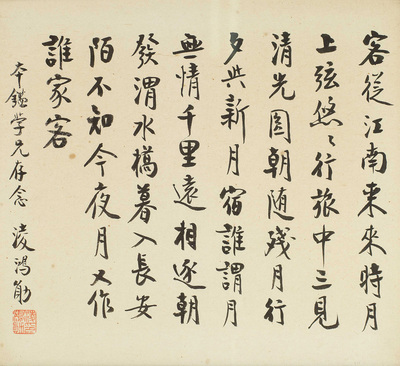 客從江南来來時月
上弦悠〻行旅中三見
清光圓朝随殘月行
夕與新月宿誰謂月
無情千里遠相逐朝
發渭水橋暮入長安
陌不知今夜月又作
誰家客
本鑑学兄存念 凌鴻勛